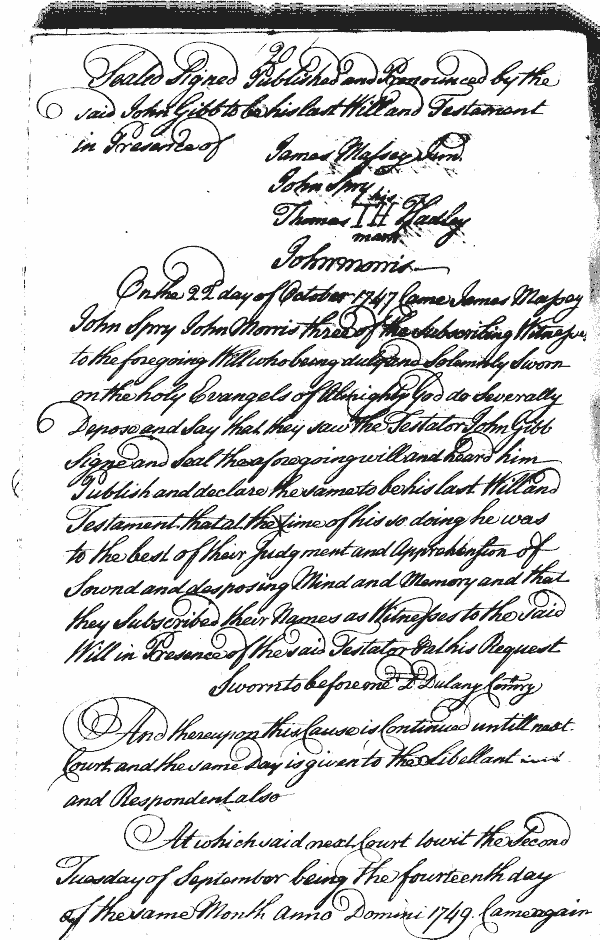 20
Sealed Signed Published and Pronounced by the
said John Gibb to be his last Will and Testament
in Presence of
James Massey Junr.
John Spry
his
Thomas TH Hadley
mark
John morris
On the 22d day of October 1747 Came James Massey
John Spry John Morris three of the subscribing Witnesses
to the foregoing Will who being duly and Solemnly Sworn
on the holy Evangels of Almighty God do Severally
Depose and Say that they saw the Testator John Gibb
Signe and Seal the aforegoing will and heard him
Publish and declare the same to be his last Will and
Testament that at the time of his so doing he was
to the best of their Judgment and Apprehension of
Sownd and desposing Mind and Memory and that
they Subscribed their Names as Witnesses to the Said
Will in Presence of the said Testator & at his Request
Sworn to before me D Dulany Comry
And thereupon this Cause is Continued untill next
Court and the same Day is given to the Libellant
and Respondent also
At which said next Court towit the Second
Tuesday of September being the fourteenth day
of the same Month Anno Domini 1749. Came again